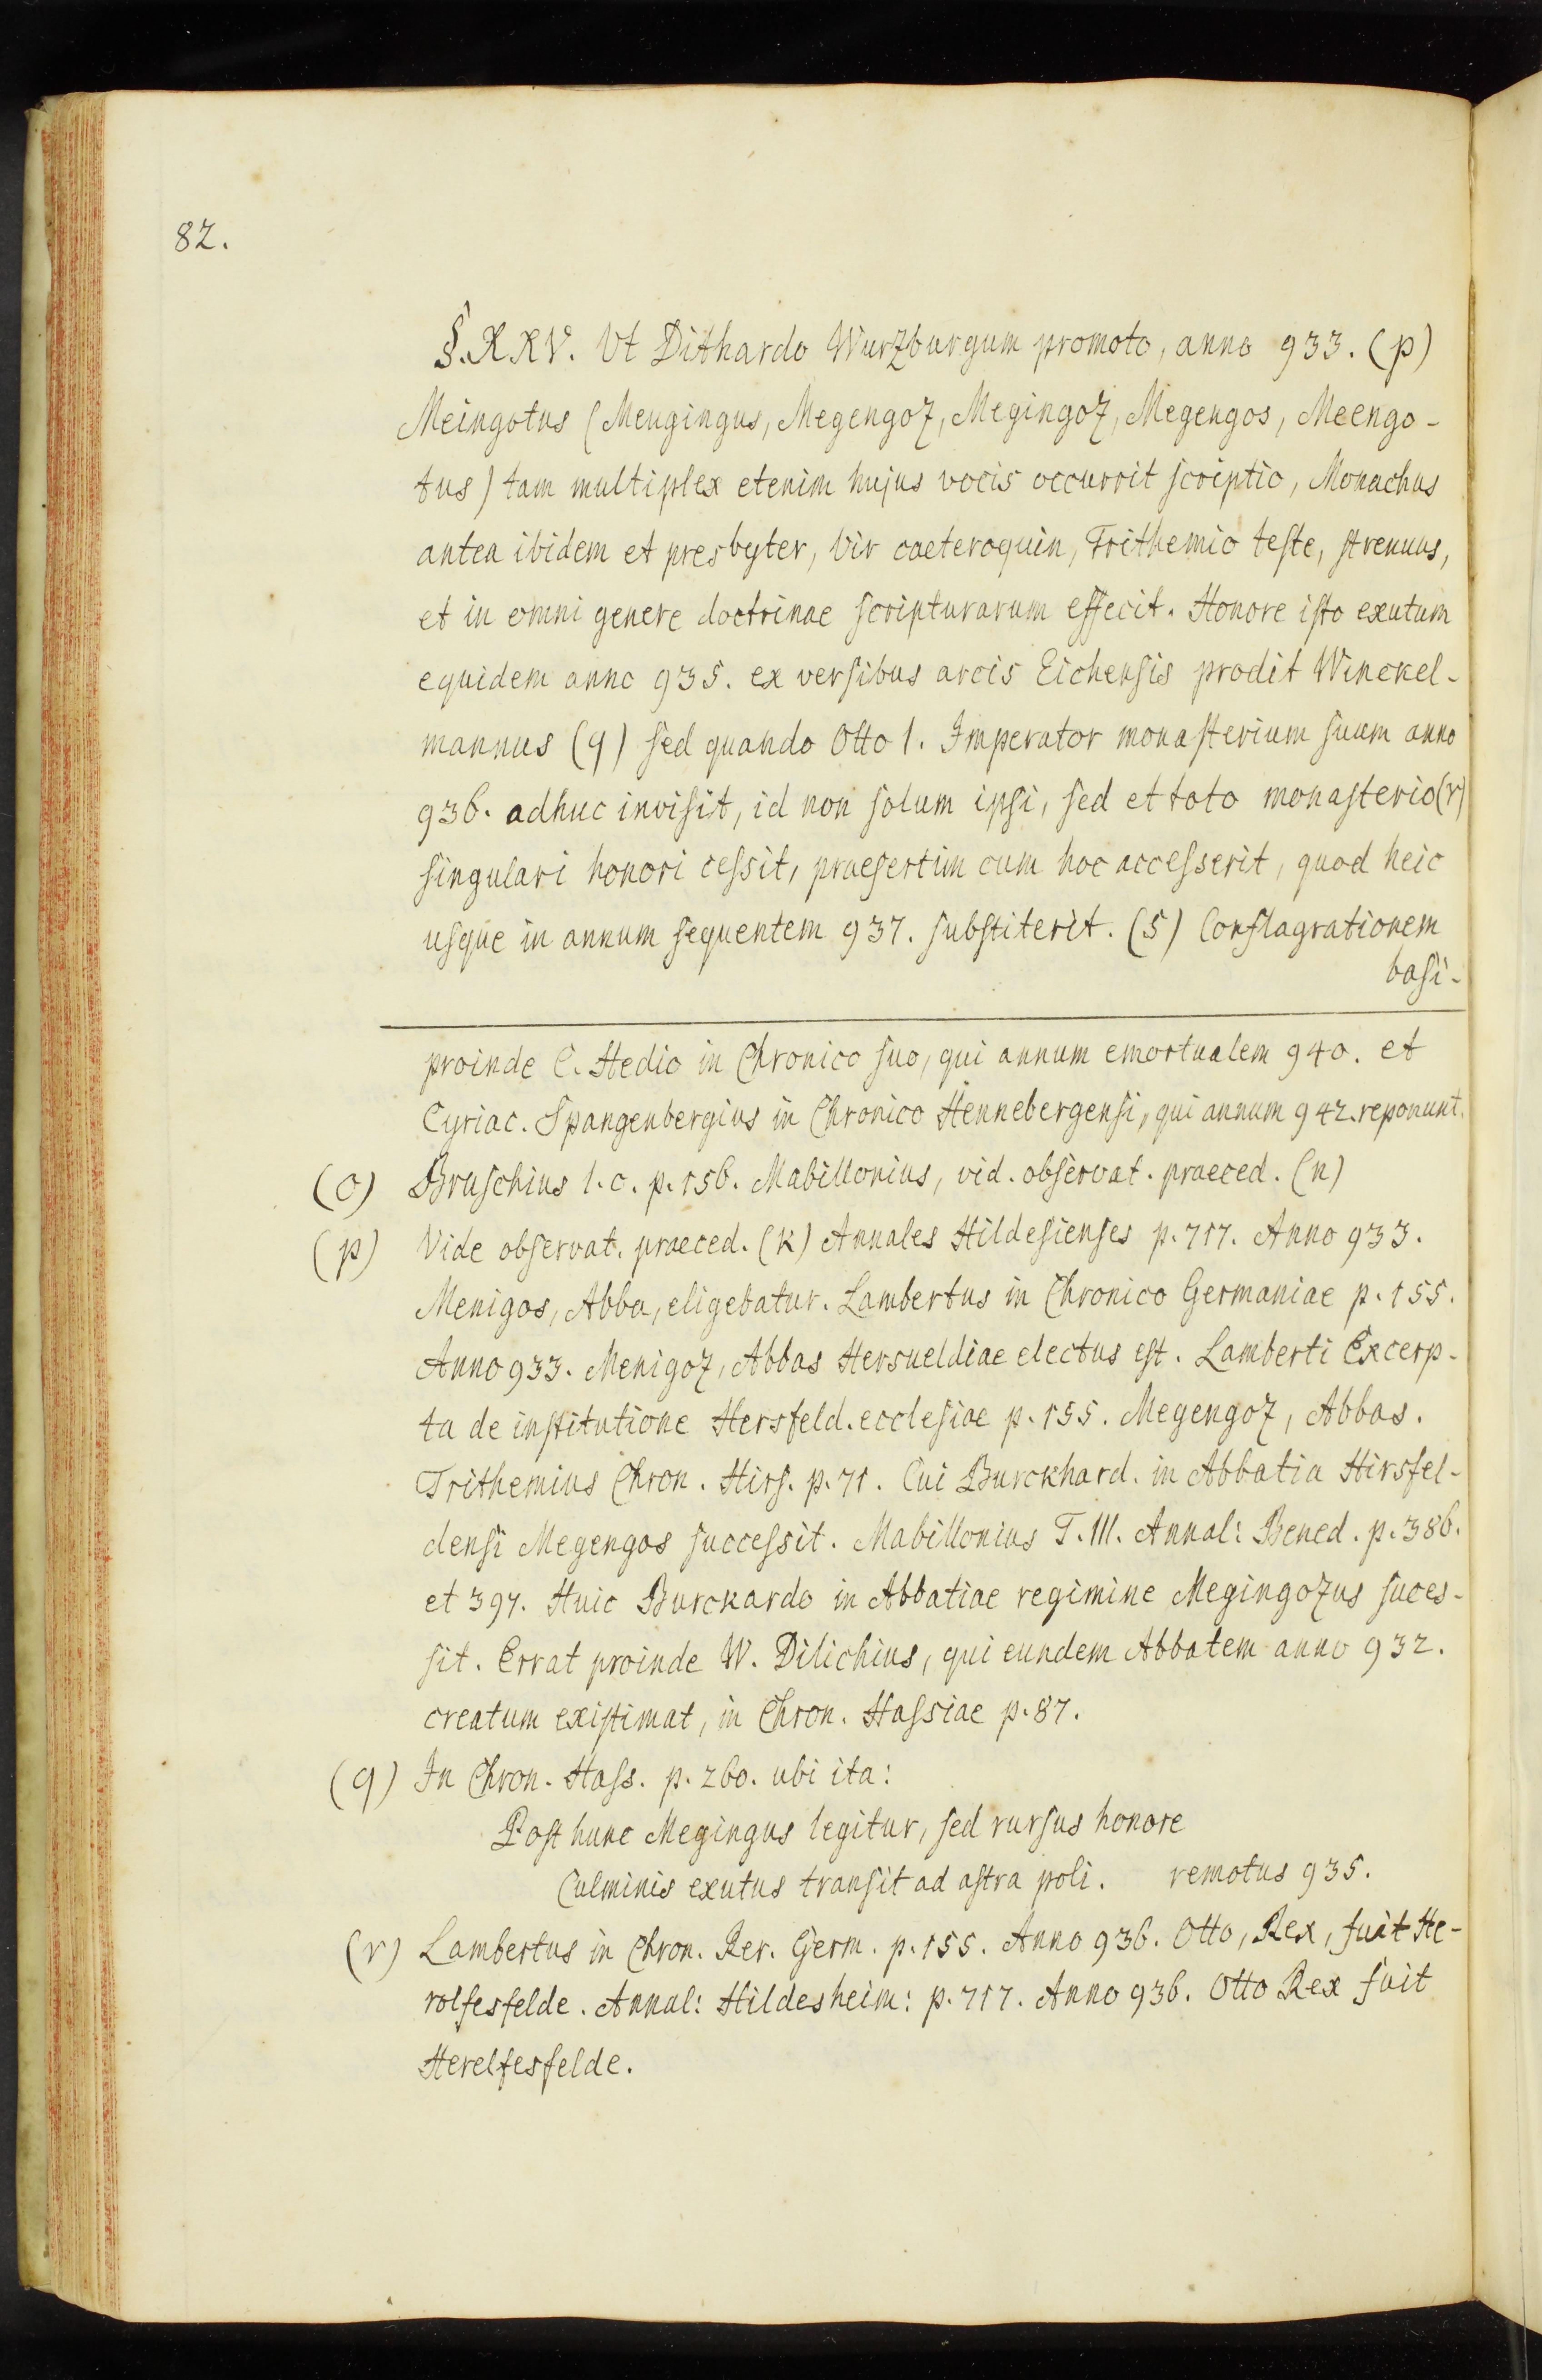 82.
§. XXV. Vt Dithardo Wurzburgum promoto, anno 933. (p)
Meingotus (Meugingus, Megengoz, Megingoz, Megengos, Meengo-
tus) tam multiplex etenim hujus vocis occurrit scriptio, Monachus
antea ibidem et presbyter, Vir caeteroquin, Trithemio teste, strenuus,
et in omni genere doctrinae scripturarum effecit. Honore isto exutum
equidem anno 935. ex versibus arcis Eichensis prodit Winckel-
mannus (q) sed quando Otto I. Imperator monasterium suum anno
936. adhuc invisit, id non solum ipsi, sed et toto monasterio (r)
singulari honori cessit, praesertim cum hoc accesserit, quod heic
usque in annum sequentem 937. substiterit. (s) Conflagrationem
basi-
proinde C. Hedio in Chronico suo, qui annum emortualem 940. et
Cyriac. Spangenbergius in Chronico Hennebergensi, qui annum 942. reponunt.
(o) Bruschius l. c. p. 156. Mabillonius, vid. observat. praeced. (n)
(p) Vide observat. praeced. (k) Annales Hildesienses p. 717. Anno 933.
Menigos, Abba, eligebatur. Lambertus in Chronico Germaniae p. 155.
Anno 933. Menigoz, Abbas Hersueldiae electus est. Lamberti Excerp-
ta de institutione Hersfeld. ecclesiae p. 155. Megengoz, Abbas.
Trithemius Chron. Hirs. p. 71. Cui Burckhard. in Abbatia Hirsfel-
densi Megengos successit. Mabillonius T. III. Annal: Bened. p. 386.
et 397. Huic Burckardo in Abbatiae regimine Megingozus suces-
sit. Errat proinde W. Dilichius, qui eundem Abbatem anno 932.
creatum existimat, in Chron. Hassiae p. 87.
(q) In Chron. Hass. p. 260. ubi ita:
Post hunc Megingus legitur, sed rursus honore
Culminis exutus transit ad astra poli. remotus 935.
(r) Lambertus in Chron. Rer. Germ. p. 155. Anno 936. Otto, Rex, fuit He-
rolfesfelde. Annal: Hildesheim: p. 717. Anno 936. Otto Rex fuit
Herelfesfelde.